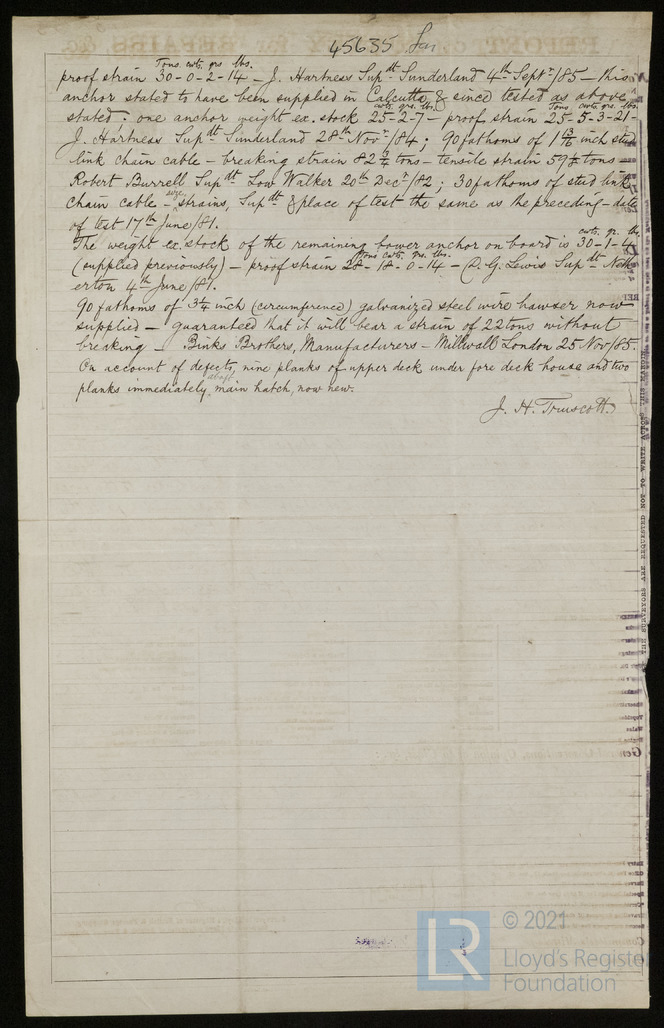 45635
Tons. cwts. qrs. lbs.
proof strain 30-0-2-14 – J. Hartness Supdt Sunderland 4th Septr/85 – this
anchor stated to have been supplied in Calcutta & since tested as above
cwts. qrs. lbs. Tons cwts. qrs. lbs.
stated; one anchor weight ex. stock 25-2-7 – proof strain 25-5-3-21-
J. Hartness Supdt Sunderland 28th Novr/84; 90 fathoms of 1 13/16 inch stud
link chain cable – breaking strain 82 tons – tensile strain 59 tons –
Robert Burrell Supdt Low Walker 20th Decr/82; 30 fathoms of stud link
chain cable – size, strains, Supdt & place of test the same as the preceding – date
of test 17th June/81.
cwts. qr. lbs.
The weight ex. stock of the remaining bower anchor on board is 30-1-4
Tons cwts. qrs. lbs.
(supplied previously) – proof strain 28-18-0-14 – Lewis Supdt Neth
erton 4th June/81.
90 fathoms of 3¼ inch (circumference) galvanized steel wire hawser now
supplied – guaranteed that it will bear a strain of 22 tons without
breaking – Binks Brothers, Manufacturers – Millwall London 25 Nov/85.
On account of defects, nine planks of upper deck under fore deck house and two
planks immediately abaft main hatch, now new.
J. H. Truscott.
THE SURVEYORS ARE REQUESTED NOT TO WRITE ACROSS THIS MARGIN
LR
© 2021
Lloyd's Register
Foundation